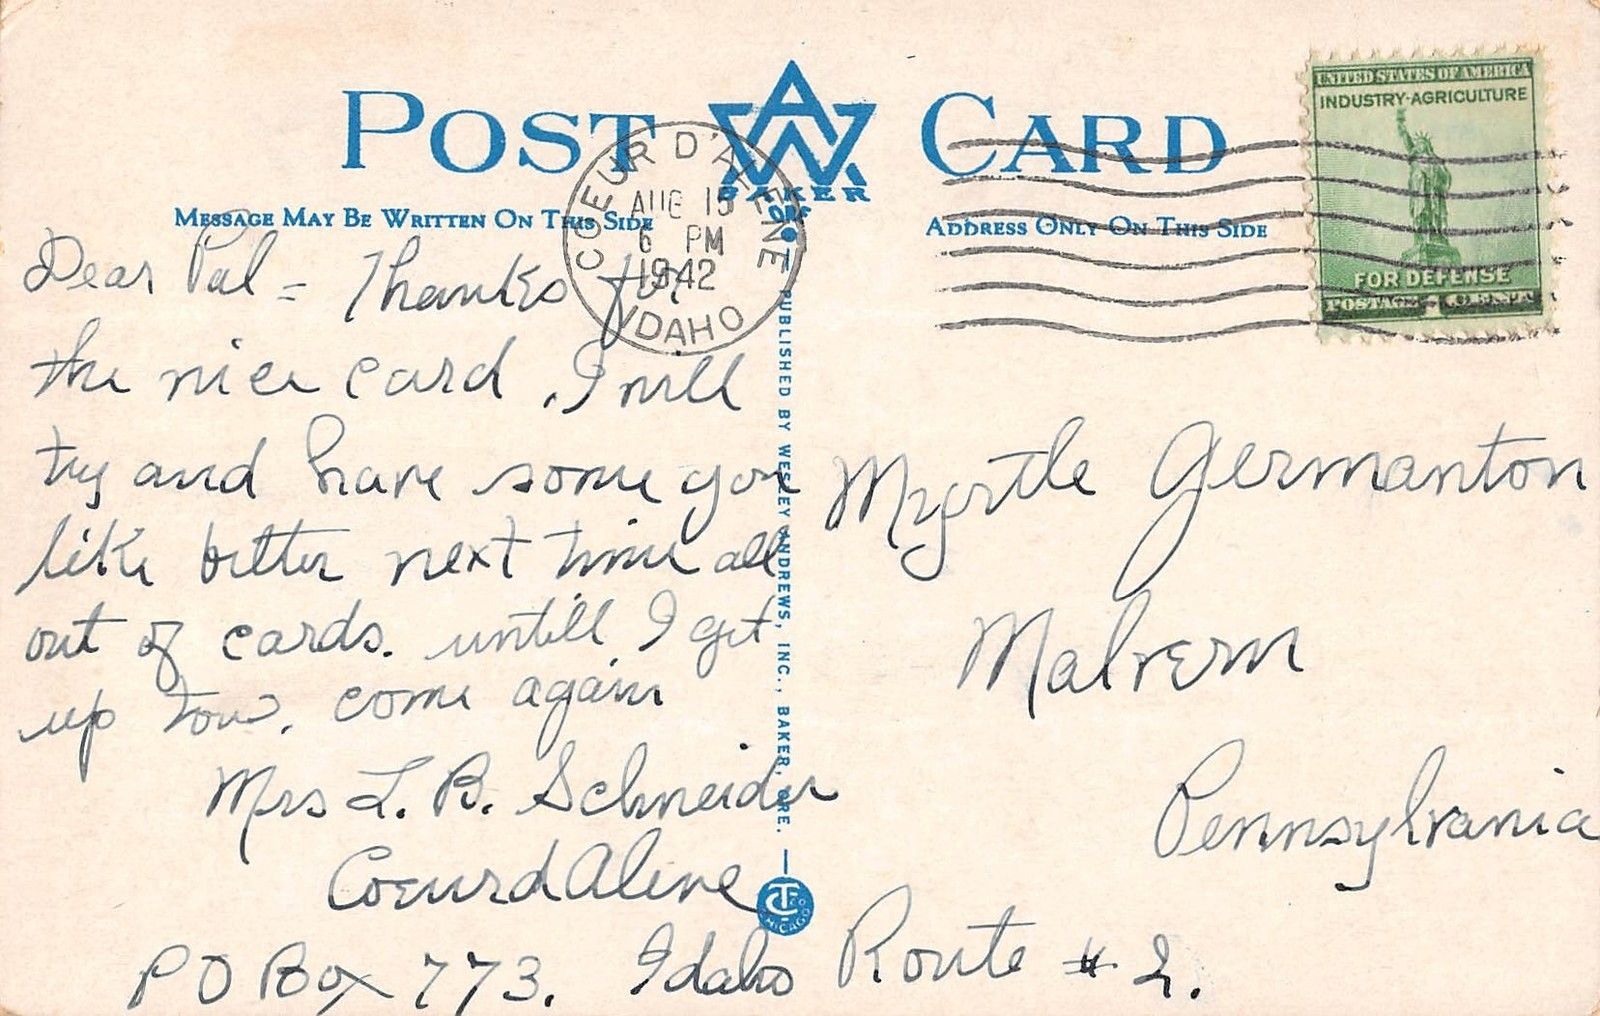 POST CARD
AWA
BAKER
ORE
MESSAGE MAY BE WRITTEN ON THIS SIDE
ADDRESS ONLY ON THIS SIDE
UNITED STATES OF AMERICA
INDUSTRY-AGRICULTURE
FOR DEFENSE
POSTAGE 1 CENT
COEUR D'ALENE
AUG 15
6 PM
1942
IDAHO
Dear Pal = Thanks for
the nice card, I will
try and have some you
like better next time all
out of cards. untill I get
up tow. come again
Mrs L. B. Schneider
Coeurd Alene
PO Box 773. Idaho
PUBLISHED BY WESLEY ANDREWS, INC., BAKER, ORE.
CHICAGO
Myrtle Germanton
Malvern
Pennsylvania
Route # 2.